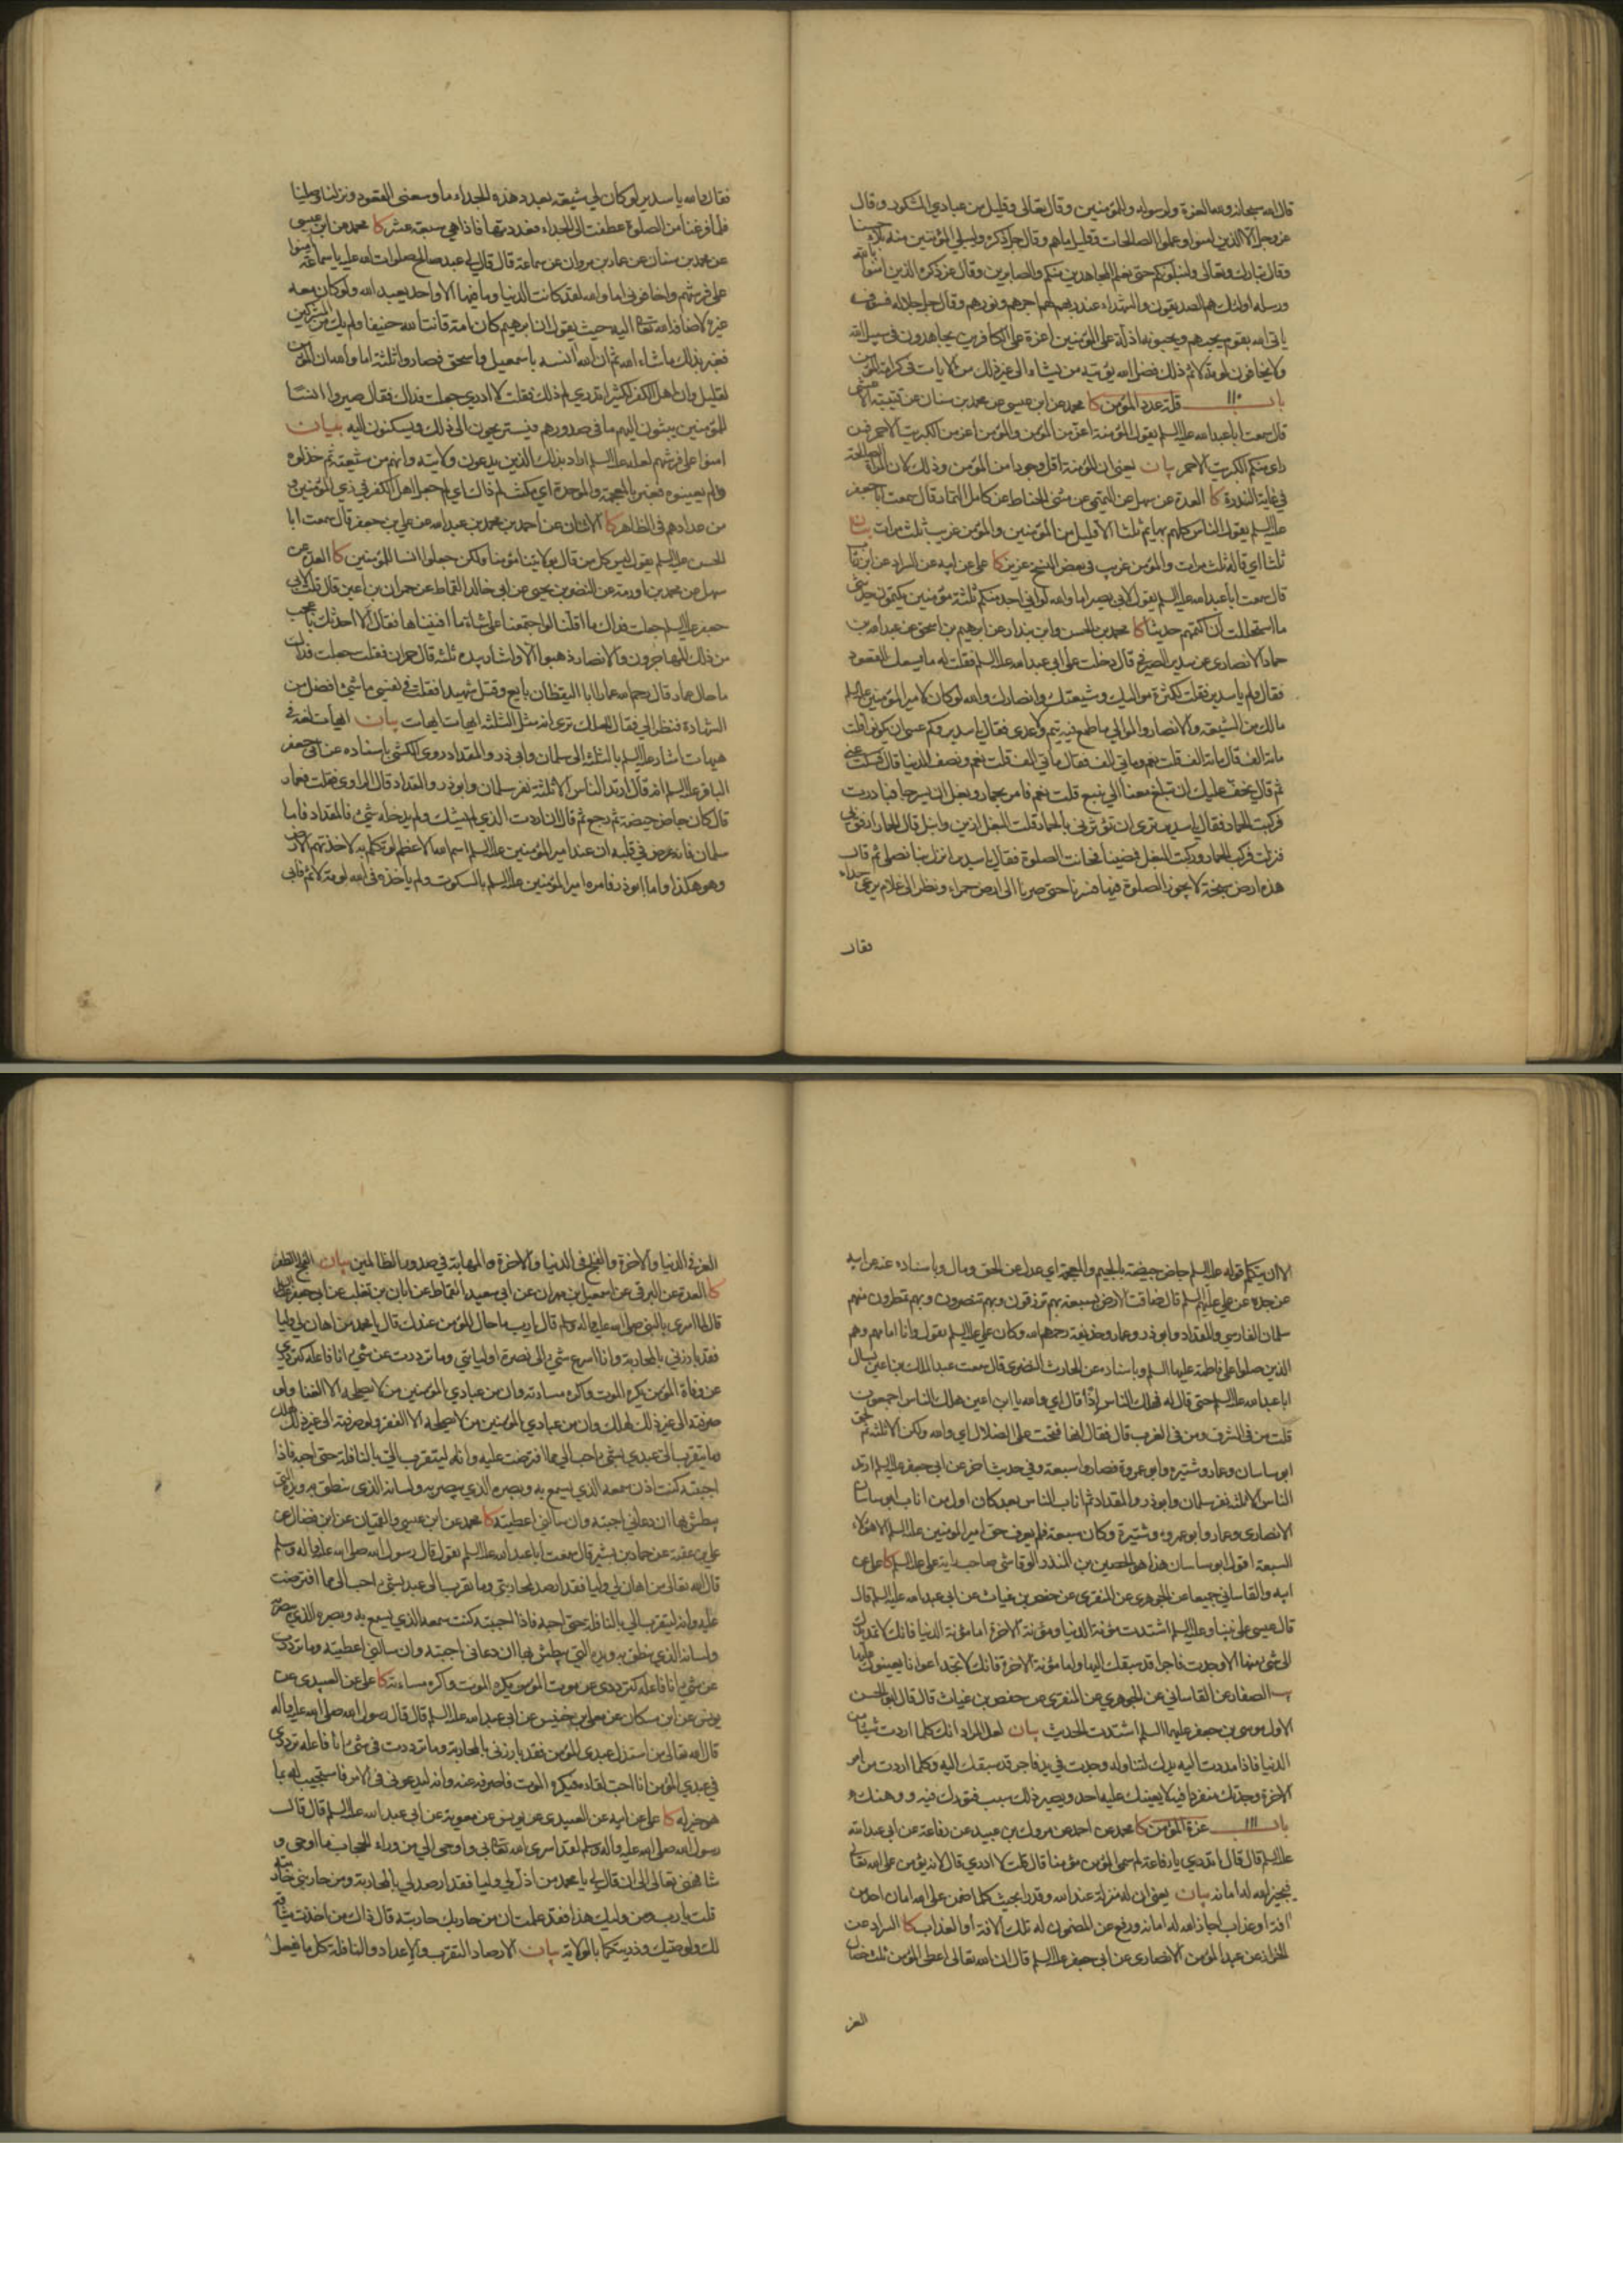 قال الله سبحانه ولله العزة ولرسوله وللمؤمنين وقال تعالى وقليل من عبادي الشكور وقال
عز وجل الا الذين امنوا وعملوا الصالحات وقليل ما هم وقال جل ذكره وليبلي المؤمنين منه بلاء حسنا
وقال تبارك وتعالى ولنبلونكم حتى نعلم المجاهدين منكم والصابرين وقال عز ذكره الذين امنوا بالله
ورسله اولئك هم الصديقون والشهداء عند ربهم لهم اجرهم ونورهم وقال جل جلاله فسوف
ياتي الله بقوم يحبهم ويحبونه اذلة على المؤمنين اعزة على الكافرين يجاهدون في سبيل الله
ولا يخافون لومة لائم ذلك فضل الله يؤتيه من يشاء الى غير ذلك من الايات في كرامة المؤمن
باب ١١٠ قلة عدد المؤمن كا محمد عن ابن عيسى عن محمد بن سنان عن قتيبة الاعشى
قال سمعت ابا عبد الله عليه السلم يقول المؤمنة اعز من المؤمن والمؤمن اعز من الكبريت الاحمر فمن
راى منكم الكبريت الاحمر بيان يعني ان المؤمنة اقل وجودا من المؤمن وذلك لان المراة الصالحة
في غاية الندرة كا العدة عن سهل عن التميمي عن مثنى الحناط عن كامل التمار قال سمعت ابا جعفر
عليه السلم يقول الناس كلهم بهايم ثلثا الا قليل من المؤمنين والمؤمن غريب ثلث مرات بيان
ثلثا اي قاله ثلث مرات والمؤمن غريب في بعض النسخ عزيز كا علي عن ابيه عن السراد عن ابن رئاب
قال سمعت ابا عبد الله عليه السلم يقول لابي بصير اما والله لو اني اجد منكم ثلثة مؤمنين يكتمون حديثي
ما استحللت ان اكتمهم حديثا كا محمد بن الحسن وابن بندار عن ابرهيم بن اسحق عن عبد الله بن
حماد الانصاري عن سدير الصيرفي قال دخلت على ابي عبد الله عليه السلم فقلت له ما يسعك القعود
فقال ولم يا سدير فقلت لكثرة مواليك وشيعتك وانصارك والله لو كان لامير المؤمنين عليه السلم
مالك من الشيعة والانصار والموالي ما طمع فيه تيم ولا عدي فقال يا سدير وكم عسى ان يكونوا قلت
مائة الف قال مائة الف قلت نعم ومائتي الف فقال مائتي الف قلت نعم ونصف الدنيا قال فسكت عني
ثم قال يخف عليك ان تبلغ معنا الى ينبع قلت نعم فامر بحمار وبغل ان يسرجا فبادرت
فركبت الحمار فقال يا سدير ترى ان تؤثرني بالحمار قلت البغل ازين وانبل قال الحمار ارفق بي
فنزلت فركب الحمار وركبت البغل فمضينا فحانت الصلوة فقال يا سدير انزل بنا نصلي ثم قال
هذه ارض سبخة لا يجوز الصلوة فيها فسرنا حتى صرنا الى ارض حمراء ونظر الى غلام يرعى جداء
فقال
فقال والله يا سدير لو كان لي شيعة بعدد هذه الجداء ما وسعني القعود ونزلنا وصلينا
فلما فرغنا من الصلوة عطفت الى الجداء فعددتها فاذا هي سبعة عشر كا محمد عن ابن عيسى
عن محمد بن سنان عن عمار بن مروان عن سماعة قال قال لي عبد صالح صلوات الله عليه يا سماعة امنوا
على فرشهم واخافوني اما والله لقد كانت الدنيا وما فيها الا واحد يعبد الله ولو كان معه
غيره لاضافه الله تعالى اليه حيث يقول ان ابرهيم كان امة قانتا لله حنيفا ولم يك من المشركين
فغبر بذلك ما شاء الله ثم ان الله انسه باسمعيل واسحق فصاروا ثلثة اما والله ان المؤمن
لقليل وان اهل الكفر لكثير اتدري لم ذلك فقلت لا ادري جعلت فداك فقال صيروا انسا
للمؤمنين يبثون اليهم ما في صدورهم فيستريحون الى ذلك ويسكنون اليه بيان
امنوا على فرشهم لعله عليه السلم اراد بذلك الذين يدعون ولايته وانهم من شيعته ثم خذلوه
ولم يعينوه فغبر بالمعجمة والموحدة اي مكث لم ذاك اي لم جعل اهل الكفر في ذي المؤمنين و
من عدادهم في الظاهر كا الاثنان عن احمد بن محمد بن عبد الله عن علي بن جعفر قال سمعت ابا
الحسن عليه السلم يقول ليس كل من قال بولايتنا مؤمنا ولكن جعلوا انسا للمؤمنين كا العدة عن
سهل عن محمد بن اورمة عن النضر عن يحيى عن ابي خالد القماط عن حمران بن اعين قال قلت لابي
جعفر عليه السلم جعلت فداك ما اقلنا لو اجتمعنا على شاة ما افنيناها فقال الا احدثك باعجب
من ذلك المهاجرون والانصار ذهبوا الا واشار بيده ثلثة قال حمران فقلت جعلت فداك
ما حال عمار قال رحم الله عمارا ابا اليقظان بايع وقتل شهيدا فقلت في نفسي ما شئ افضل من
الشهادة فنظر الي فقال لعلك ترى انه مثل الثلثة ايهات ايهات بيان ايهات لغة في
هيهات اشار عليه السلم بالثلثة الى سلمان وابي ذر والمقداد روى الكشي باسناده عن ابي جعفر
الباقر عليه السلم انه قال ارتد الناس الا ثلثة نفر سلمان وابو ذر والمقداد قال الراوي فقلت فعمار
قال كان جاض جيضة ثم رجع ثم قال ان اردت الذي لم يشك ولم يدخله شئ فالمقداد فاما
سلمان فانه عرض في قلبه ان عند امير المؤمنين عليه السلم اسم الله الاعظم لو تكلم به لاخذتهم الارض
وهو هكذا واما ابو ذر فامره امير المؤمنين عليه السلم بالسكوت ولم ياخذه في الله لومة لائم فابى
الا ان يتكلم قوله عليه السلم جاض جيضة بالجيم والمعجمة اي عدل عن الحق ومال وباسناده عنه عن ابيه
عن جده عن علي عليهم السلم قال ضاقت الارض بسبعة بهم ترزقون وبهم تنصرون وبهم تمطرون منهم
سلمان الفارسي والمقداد وابو ذر وعمار وحذيفة رحمهم الله وكان علي عليه السلم يقول وانا امامهم وهم
الذين صلوا على فاطمة عليها السلم وباسناده عن الحارث النضري قال سمعت عبد الملك بن اعين يسال
ابا عبد الله عليه السلم حتى قال له فهلك الناس اذا قال اي والله يا ابن اعين هلك الناس اجمعون
قلت من في الشرق ومن في الغرب قال فقال انها فتحت على الضلال اي والله ولكن الا ثلثة ثم لحق
ابو ساسان وعمار وشتيرة وابو عمرة فصاروا سبعة وفي حديث اخر عن ابي جعفر عليه السلم ارتد
الناس الا ثلثة نفر سلمان وابو ذر والمقداد ثم اناب الناس بعد كان اول من اناب ابو ساسان
الانصاري وعمار وابو عمرة وشتيرة وكان سبعة فلم يعرف حق امير المؤمنين عليه السلم الا هؤلاء
السبعة اقول ابو ساسان هذا هو الحصين بن المنذر الوقاشي صاحب راية علي عليه السلم كا علي عن
ابيه والقاساني جميعا عن الجوهري عن المنقري عن حفص بن غياث عن ابي عبد الله عليه السلم قال
قال عيسى على نبينا وعليه السلم اشتدت مؤنة الدنيا ومؤنة الاخرة اما مؤنة الدنيا فانك لا تمد يدك
الى شئ منها الا وجدت فاجرا قد سبقك اليها واما مؤنة الاخرة فانك لا تجد اعوانا يعينونك عليها
يب الصفار عن القاساني عن الجوهري عن المنقري عن حفص بن غياث قال قال ابو الحسن
الاول موسى بن جعفر عليهما السلم اشتدت الحديث بيان لعل المراد انك كلما اردت شيئا من
الدنيا فاذا مددت اليه يدك لتناوله وجدت في يد فاجر قد سبقك اليه وكلما اردت من امر
الاخرة وجدتك منفردا فيه لا يعينك عليه احد ويصير ذلك سبب فتورك فيه ووهنك
باب ١١١ عزة المؤمن كا محمد عن احمد عن مروك بن عبيد عن رفاعة عن ابي عبد الله
عليه السلم قال قال اتدري يا رفاعة لم سمي المؤمن مؤمنا قال قلت لا ادري قال لانه يؤمن على الله تعالى
فيجيز الله له امانه بيان يعني ان له منزلة عند الله وقدرا بحيث كلما ضمن على الله امان احد من
افة او عذاب اجاز الله له امانه ورفع عن المضمون له تلك الافة او العذاب كا السراد عن
الخراز عن عبد المؤمن الانصاري عن ابي جعفر عليه السلم قال ان الله تعالى اعطى المؤمن ثلث خصال
العز
العز في الدنيا والاخرة والفلج في الدنيا والاخرة والمهابة في صدور الظالمين بيان الفلج الظفر
كا العدة عن البرقي عن اسمعيل بن مهران عن ابي سعيد القماط عن ابان بن تغلب عن ابي جعفر عليه السلم
قال لما اسري بالنبي صلى الله عليه واله وسلم قال يا رب ما حال المؤمن عندك قال يا محمد من اهان لي وليا
فقد بارزني بالمحاربة وانا اسرع شئ الى نصرة اوليائي وما ترددت عن شئ انا فاعله كترددي
عن وفاة المؤمن يكره الموت واكره مساءته وان من عبادي المؤمنين من لا يصلحه الا الغنا ولو
صرفته الى غير ذلك لهلك وان من عبادي المؤمنين من لا يصلحه الا الفقر ولو صرفته الى غير ذلك لهلك
وما يتقرب الي عبدي بشئ احب الي مما افترضت عليه وانه ليتقرب الي بالنافلة حتى احبه فاذا
احببته كنت اذن سمعه الذي يسمع به وبصره الذي يبصر به ولسانه الذي ينطق به ويده التي
يبطش بها ان دعاني اجبته وان سالني اعطيته كا محمد عن ابن عيسى والقميان عن ابن فضال عن
علي بن عقبة عن حماد بن بشير قال سمعت ابا عبد الله عليه السلم يقول قال رسول الله صلى الله عليه واله وسلم
قال الله تعالى من اهان لي وليا فقد ارصد لمحاربتي وما تقرب الي عبد بشئ احب الي مما افترضت
عليه وانه ليتقرب الي بالنافلة حتى احبه فاذا احببته كنت سمعه الذي يسمع به وبصره الذي يبصر به
ولسانه الذي ينطق به ويده التي يبطش بها ان دعاني اجبته وان سالني اعطيته وما ترددت
عن شئ انا فاعله كترددي عن موت المؤمن يكره الموت واكره مساءته كا علي عن العبيدي عن
يونس عن ابن مسكان عن معلى بن خنيس عن ابي عبد الله عليه السلم قال قال رسول الله صلى الله عليه واله
قال الله تعالى من استذل عبدي المؤمن فقد بارزني بالمحاربة وما ترددت في شئ انا فاعله كترددي
في عبدي المؤمن انا احب لقاءه فيكره الموت فاصرفه عنه وانه ليدعوني في الامر فاستجيب له بما
هو خير له كا علي عن ابيه عن العبيدي عن يونس عن معوية عن ابي عبد الله عليه السلم قال قال
رسول الله صلى الله عليه واله وسلم لقد اسرى الله تعالى بي واوحى الي من وراء الحجاب ما اوحى و
شافهني تعالى الى ان قال لي يا محمد من اذل لي وليا فقد ارصد لي بالمحاربة ومن حاربني حاربته
قلت يا رب ومن وليك هذا فقد علمت ان من حاربك حاربته قال ذاك من اخذت ميثاقه
لك ولوصيك وذريتكما بالولاية بيان الارصاد الترقب والاعداد والنافلة كل ما يفعل